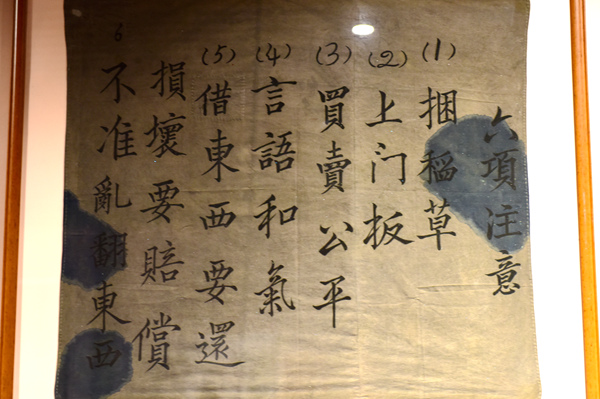 六項注意
(1) 捆稲草
(2) 上门扳
(3) 買賣公平
(4) 言語和氣
(5) 借東西要還
損壞要賠償
6 不准亂翻東西